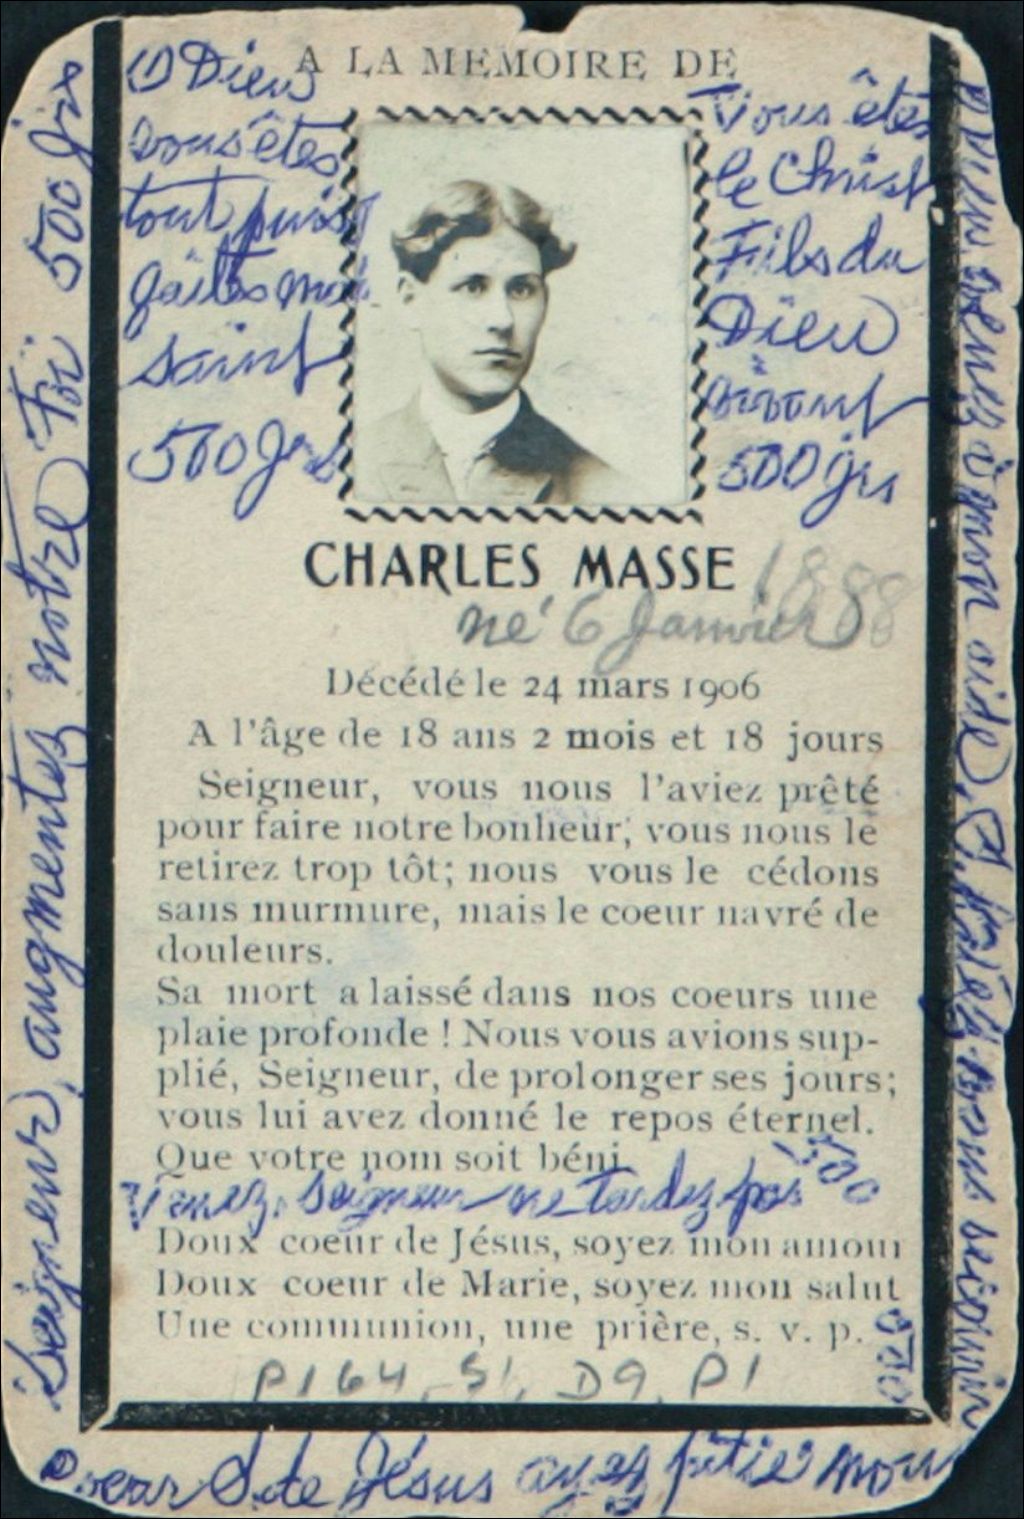 A LA MEMOIRE DE
O Dieu
vous êtes
tout puiss
faites moi
saint
500 jrs
Vous êtes
le Christ
Fils du
Dieu
vivant
500 jrs
CHARLES MASSE
né 6 Janvier 1888
Décédé le 24 mars 1906
A l'âge de 18 ans 2 mois et 18 jours
Seigneur, vous nous l'aviez prêté
pour faire notre bonheur, vous nous le
retirez trop tôt; nous vous le cédons
sans murmure, mais le coeur navré de
douleurs.
Sa mort a laissé dans nos coeurs une
plaie profonde ! Nous vous avions sup-
plié, Seigneur, de prolonger ses jours;
vous lui avez donné le repos éternel.
Que votre nom soit béni
Venez, Seigneur ne tardez pas 300
Doux coeur de Jésus, soyez mon amour
Doux coeur de Marie, soyez mon salut
Une communion, une prière, s. v. p.
P164, S1, D9, P1
Seigneur, augmentez notre Foi 500 jrs
O Dieu venez à mon aide, S. hâtez vous secourir
500
coeur S. de Jésus ayez pitié nous